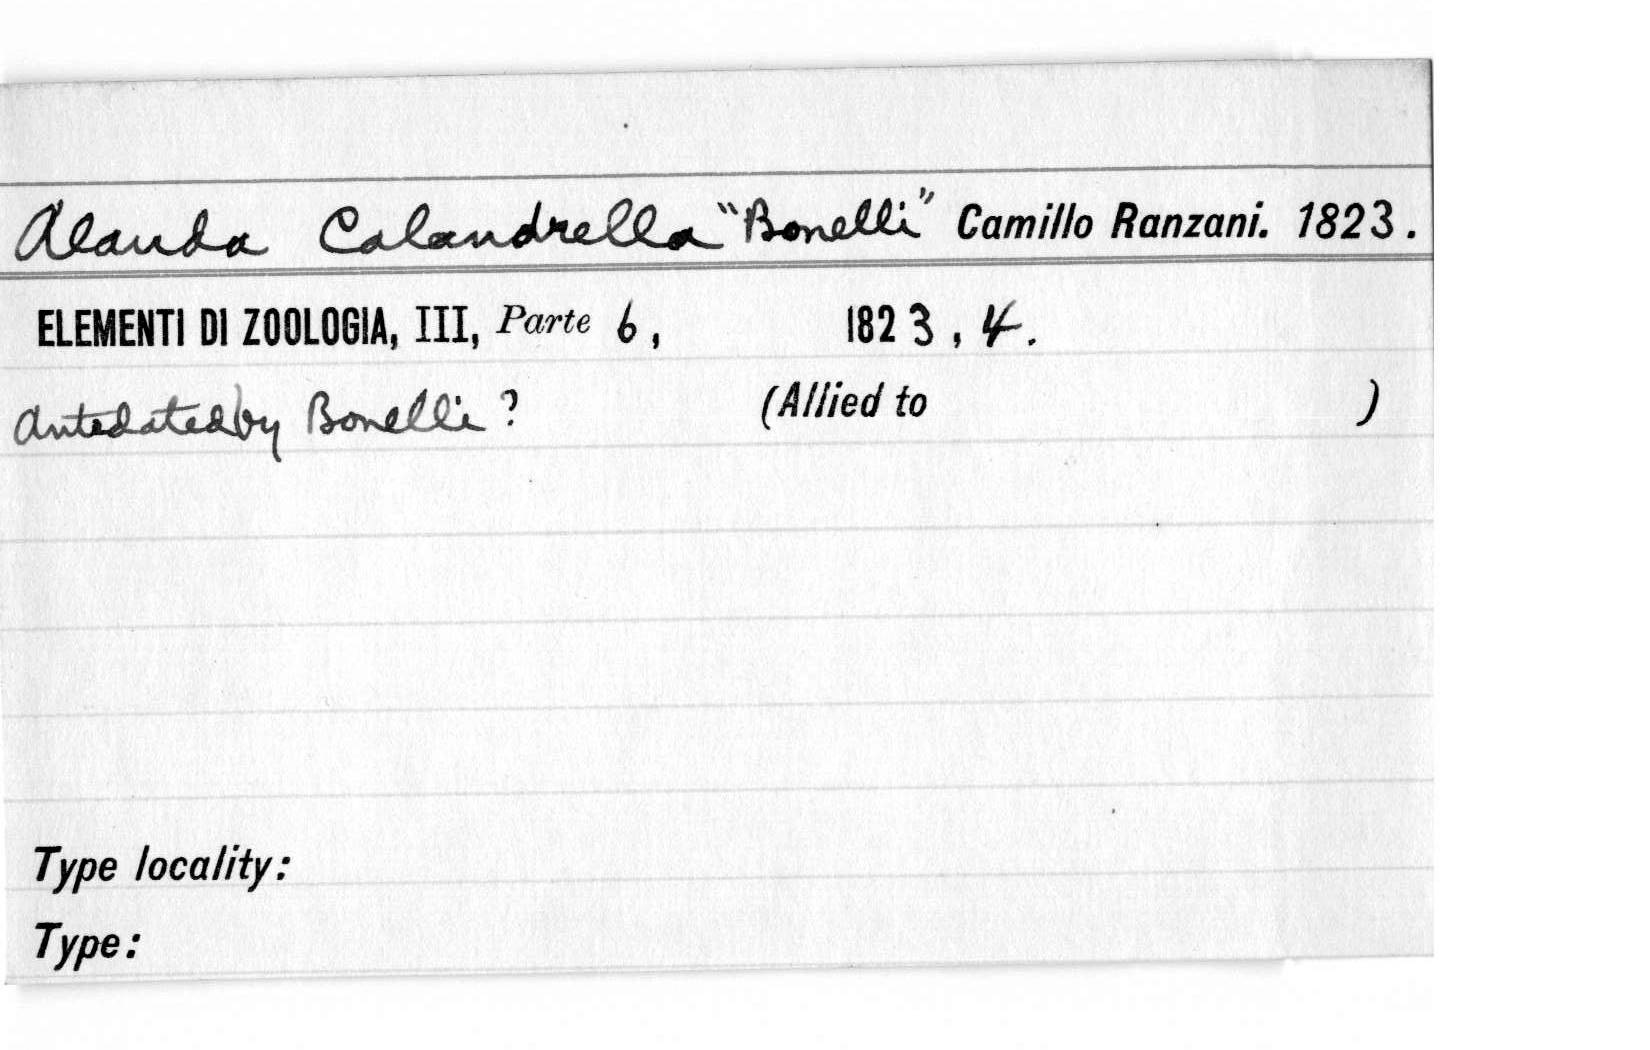 Alauda Calandrella "Bonelli" Camillo Ranzani. 1823.
ELEMENTI DI ZOOLOGIA, III, Parte 6, 1823, 4.
Antedated by Bonelli? (Allied to )
Type locality:
Type: